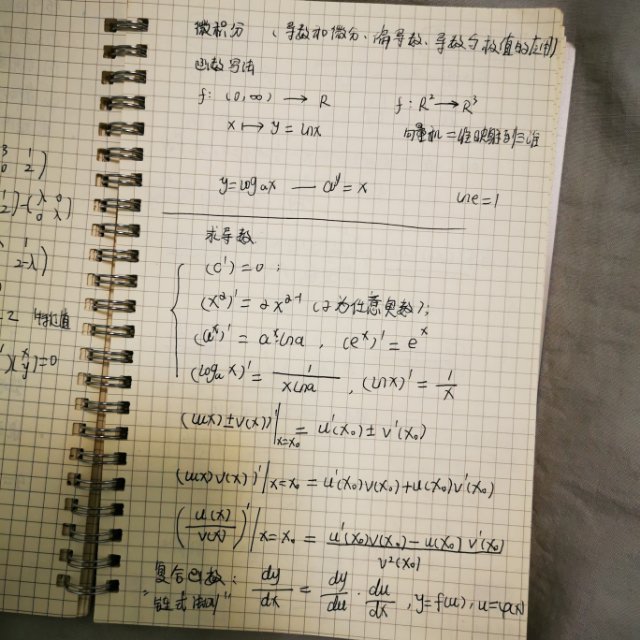 3 1
0 2)
2)-(λ 0
0 λ)
1
2-λ)
2 特征值
)(x
y)=0
微积分 (导数和微分、偏导数、导数与极值的应用)
函数写法
f: (0,∞) → R f: R² → R³
x ↦ y = lnx 向量机二维映射到三维
y=logax — a^y = x lne=1
求导数
(c')=0;
(x^α)' = αx^(α-1) (α为任意实数);
(a^x)' = a^x·lna, (e^x)' = e^x
(logax)' = 1/(xlna), (lnx)' = 1/x
(u(x)±v(x))'|x=x₀ = u'(x₀)±v'(x₀)
(u(x)v(x))'|x=x₀ = u'(x₀)v(x₀)+u(x₀)v'(x₀)
(u(x)/v(x))'|x=x₀ = (u'(x₀)v(x₀)-u(x₀)v'(x₀))/v²(x₀)
复合函数: dy/dx = dy/du · du/dx, y=f(u), u=φ(x)
"链式法则"